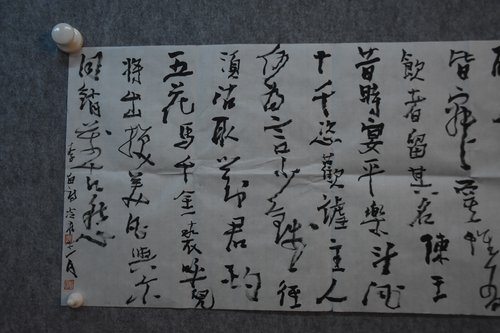 皆寂寞惟有
飲者留其名陳王
昔時宴平樂斗酒
十千恣歡謔主人
何為言少錢徑
須沽取對君酌
五花馬千金裘呼兒
將出換美酒與尔
同銷萬古愁
李白詩